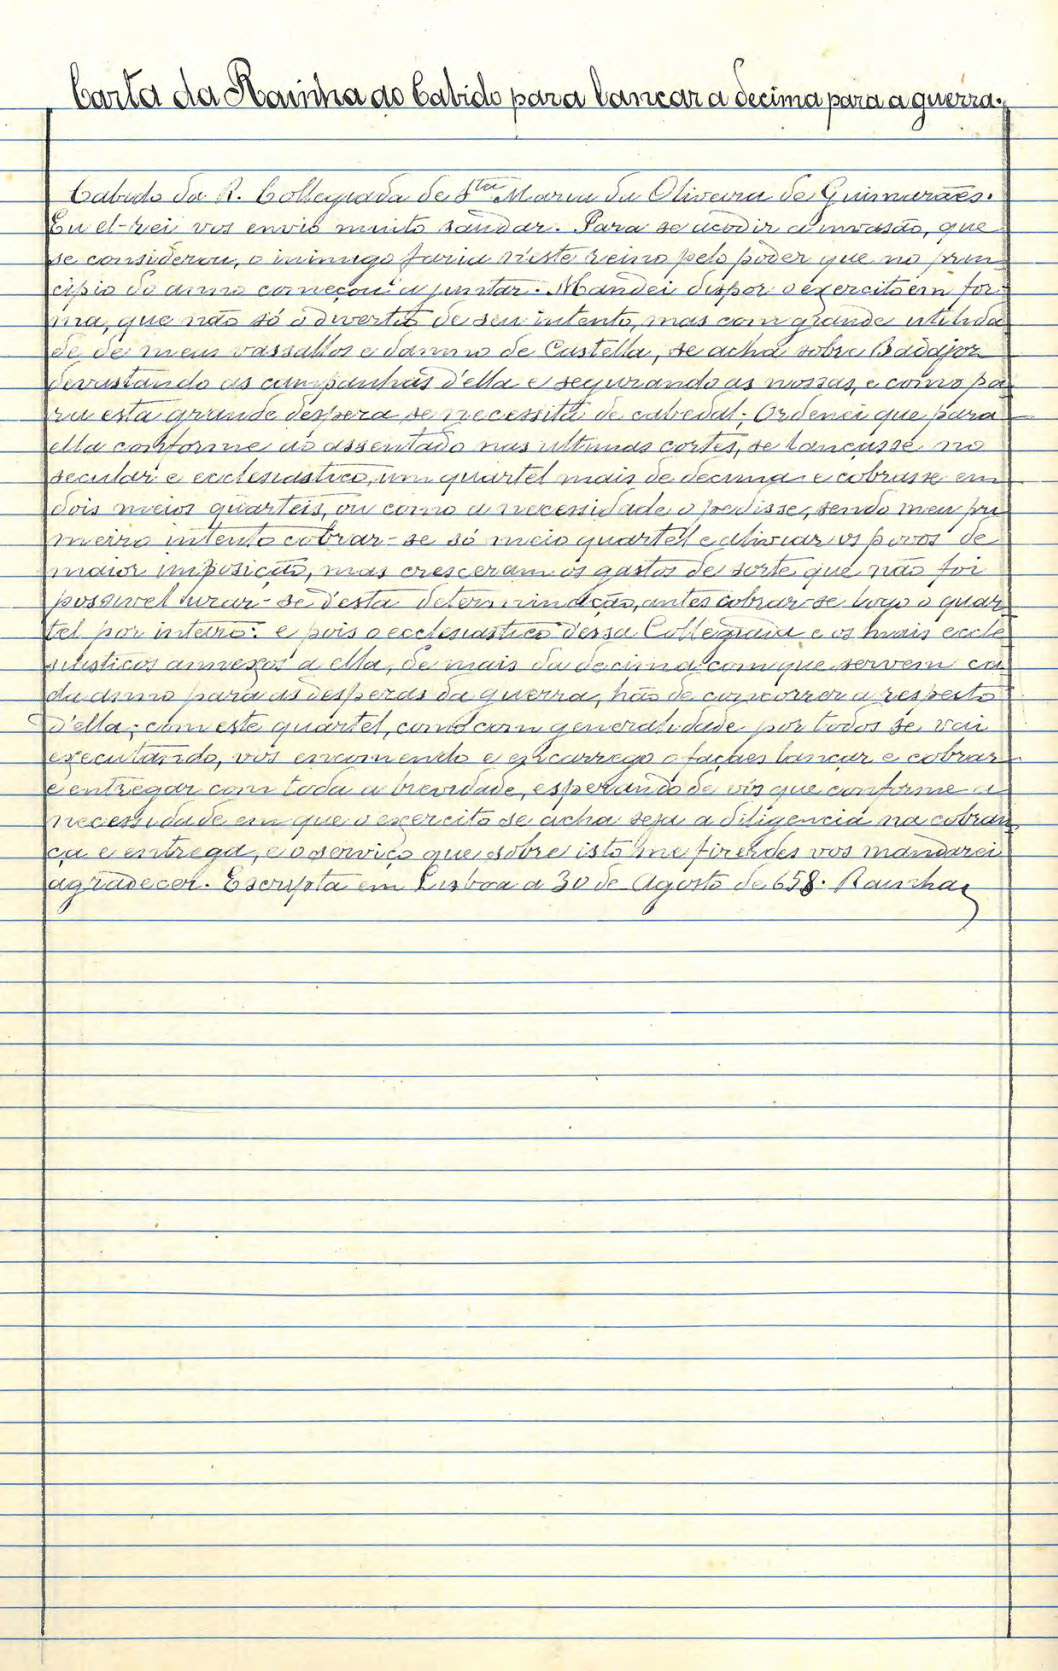 Carta da Rainha ao Cabido para lançar a decima para a guerra.
Cabido da R. Collegiada de Sta Maria da Oliveira de Guimarães.
Eu el-rei vos envio muito saudar. Para se acodir a invasão, que
se considerou, o inimigo faria n'este reino pelo poder que no prin
cipio do anno começou a juntar. Mandei dispor o exercito em for
ma, que não só o divertiu de seu intento, mas com grande utilida
de de meus vassallos e damno de Castella, se acha sobre Badajoz
devastando as campanhas d'ella e segurando as nossas, e como pa
ra esta grande despeza se necessita de cabedal; Ordenei que para
ella conforme ao assentado nas ultimas cortes, se lançasse no
secular e ecclesiastico, um quartel mais de decima e cobrasse em
dois meios quarteis, ou como a necessidade o pedisse, sendo meu pri
meiro intento cobrar-se só meio quartel e aliviar os povos de
maior imposição, mas cresceram os gastos de sorte que não foi
possivel uzar-se d'esta determinação, antes cobrar-se logo o quar
tel por inteiro: e pois o ecclesiastico dessa Collegiada e os mais eccle
siasticos annexos a ella, de mais da decima com que servem ca
da anno para as despezas da guerra, hão de concorrer a respeito
d'ella; com este quartel, como com generalidade por todos se vai
executando, vos encomendo e encarrego o façaes lançar e cobrar
e entregar com toda a brevidade, esperando de vós que conforme a
necessidade em que o exercito se acha seja a diligencia na cobran
ça e entrega, e o serviço que sobre isto me fizerdes vos mandarei
agradecer. Escripta em Lisboa a 30 de Agosto de 658. Rainha